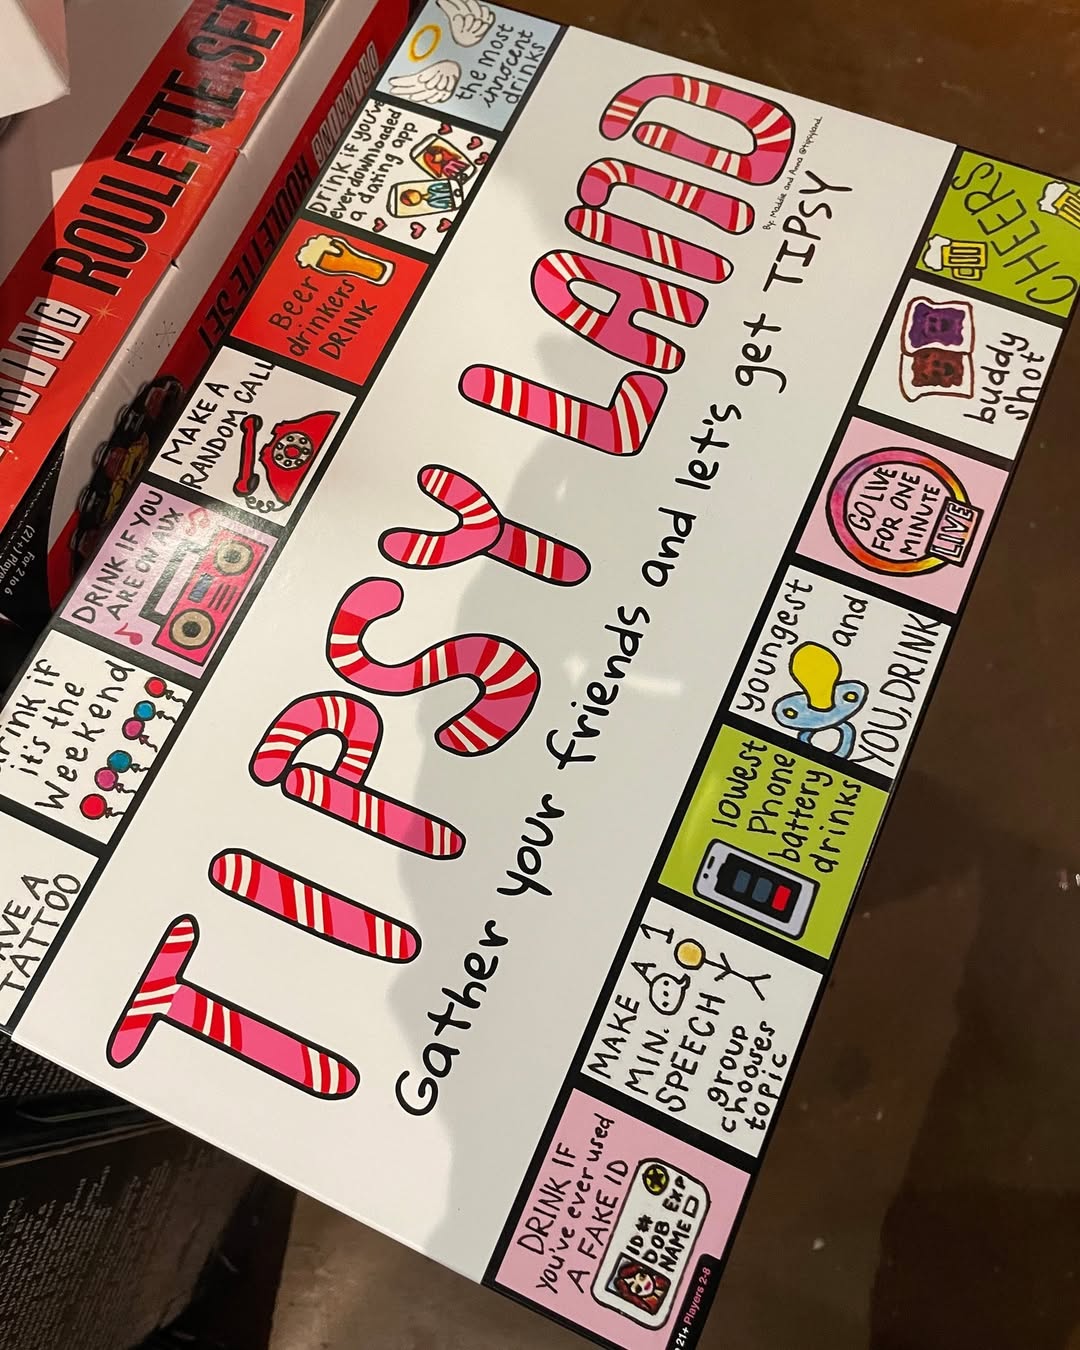 TIPSY LAND
By: Maddie and Anna @tipsyland
Gather your friends and let's get TIPSY
TATTOO
it's the
weekend
DRINK IF YOU
ARE ON AUX
MAKE A
RANDOM CALL
Beer
drinkers
DRINK
Drink if you've
ever downloaded
a dating app
the most
innocent
drinks
DRINK IF
you've ever used
A FAKE ID
ID#
DOB EXP
NAME
MAKE A 1
MIN.
SPEECH
group
chooses
topic
lowest
Phone
battery
drinks
youngest
and
YOU, DRINK
GO LIVE
FOR ONE
MINUTE
LIVE
buddy
shot
CHEERS
21+ Players 2-8
ROULETTE SET
ROULETTE SET
For 2 to 6